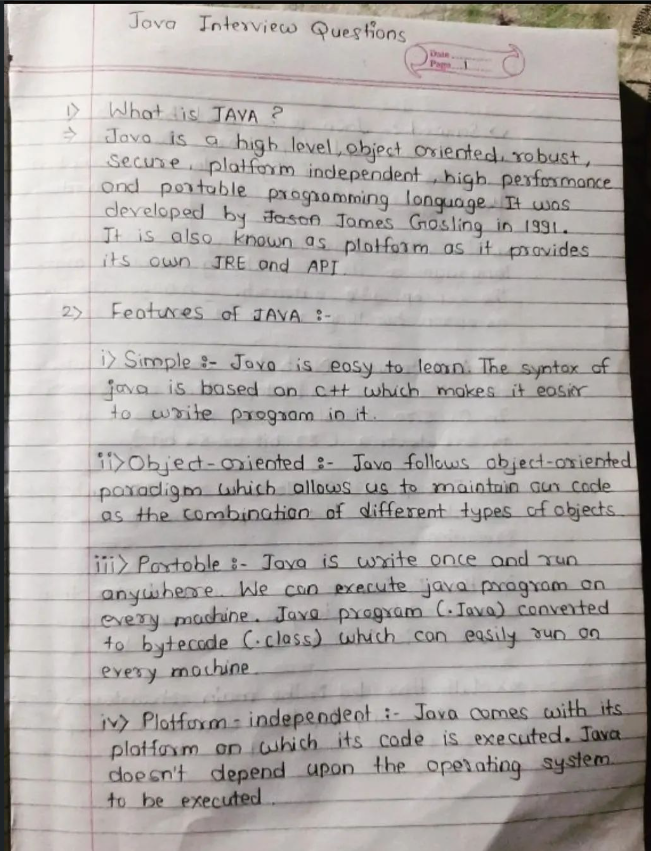 Java Interview Questions
Date
Page 1
1) What is JAVA ?
⇒ Java is a high level, object oriented, robust,
secure, platform independent, high performance
and portable programming language. It was
developed by Jason James Gosling in 1991.
It is also known as platform as it provides
its own JRE and API.
2) Features of JAVA :-
i) Simple :- Java is easy to learn. The syntax of
java is based on c++ which makes it easier
to write program in it.
ii) Object-oriented :- Java follows object-oriented
paradigm which allows us to maintain our code
as the combination of different types of objects.
iii) Portable :- Java is write once and run
anywhere. We can execute java program on
every machine. Java program (.Java) converted
to bytecode (.class) which can easily run on
every machine.
iv) Platform-independent :- Java comes with its
platform on which its code is executed. Java
doesn't depend upon the operating system
to be executed.